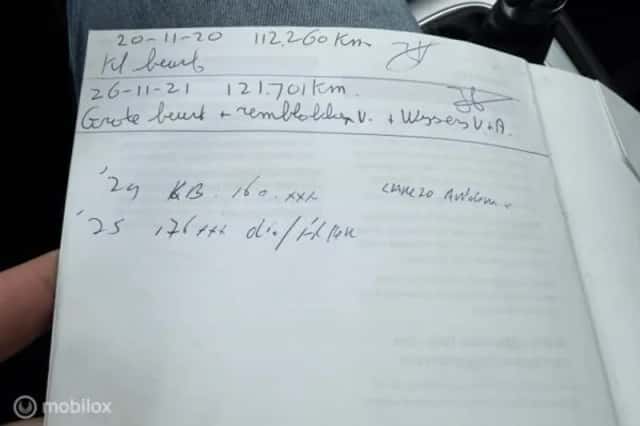 20-11-20 112.260 Km.
Kl beurt
26-11-21 121.701 Km.
Grote beurt + remblokken V. + Wissers V+A.
'24 KB. 160.xxx
'25 176xxx olie/filter
mobilox